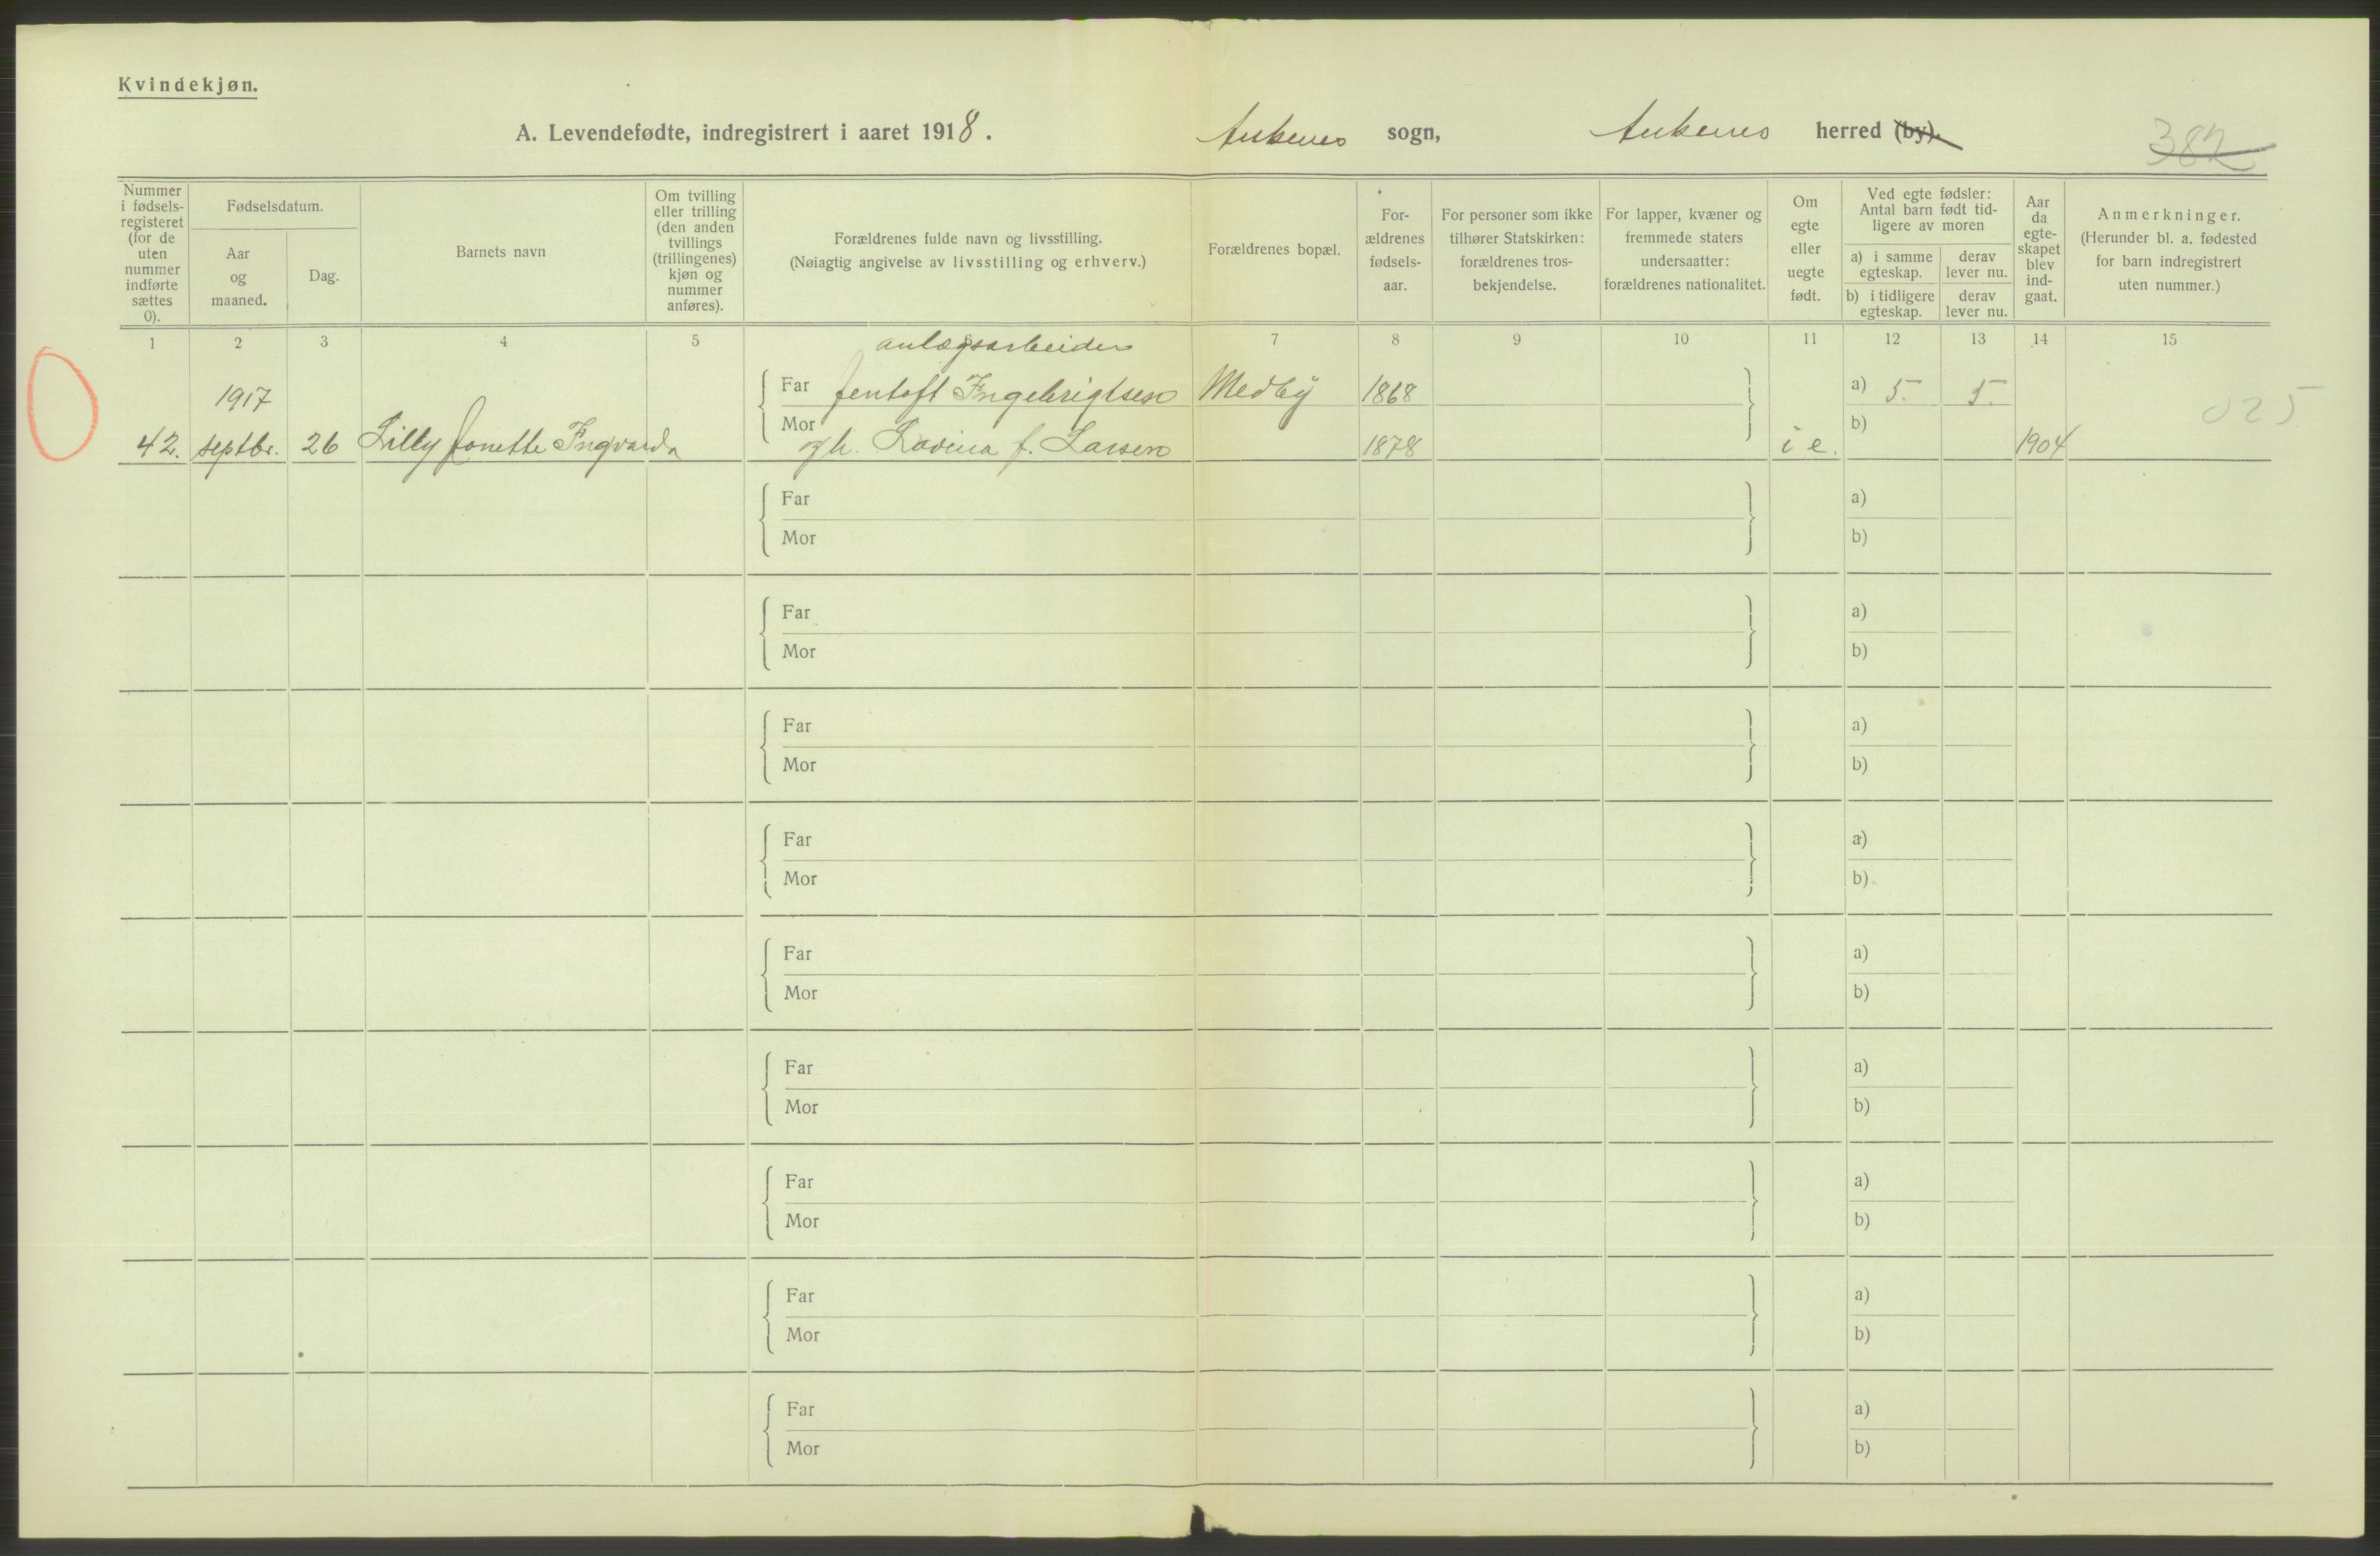 Kvindekjøn.
A. Levendefødte, indregistrert i aaret 1918. Ankenes sogn, Ankenes herred (by). 382
Nummer i fødselsregisteret (for de uten nummer indførte sættes 0).
Fødselsdatum.
Aar og maaned.
Dag.
Barnets navn
Om tvilling eller trilling (den anden tvillings (trillingenes) kjøn og nummer anføres).
Forældrenes fulde navn og livsstilling.
(Nøiagtig angivelse av livsstilling og erhverv.)
Forældrenes bopæl.
Forældrenes fødselsaar.
For personer som ikke tilhører Statskirken: forældrenes trosbekjendelse.
For lapper, kvæner og fremmede staters undersaatter: forældrenes nationalitet.
Om egte eller uegte født.
Ved egte fødsler: Antal barn født tidligere av moren
a) i samme egteskap.
derav lever nu.
b) i tidligere egteskap.
derav lever nu.
Aar da egteskapet blev indgaat.
Anmerkninger.
(Herunder bl. a. fødested for barn indregistrert uten nummer.)
1 2 3 4 5 7 8 9 10 11 12 13 14 15
anlægsarbeider
1917 Far Jentoft Ingebrigtsen Medby 1868 a) 5. 5. 025
42. septbr. 26 Lilly Jonette Ingvarda Mor og h. Lovina f. Larsen 1878 i e. b) 1904
Far a)
Mor b)
Far a)
Mor b)
Far a)
Mor b)
Far a)
Mor b)
Far a)
Mor b)
Far a)
Mor b)
Far a)
Mor b)
Far a)
Mor b)
Far a)
Mor b)